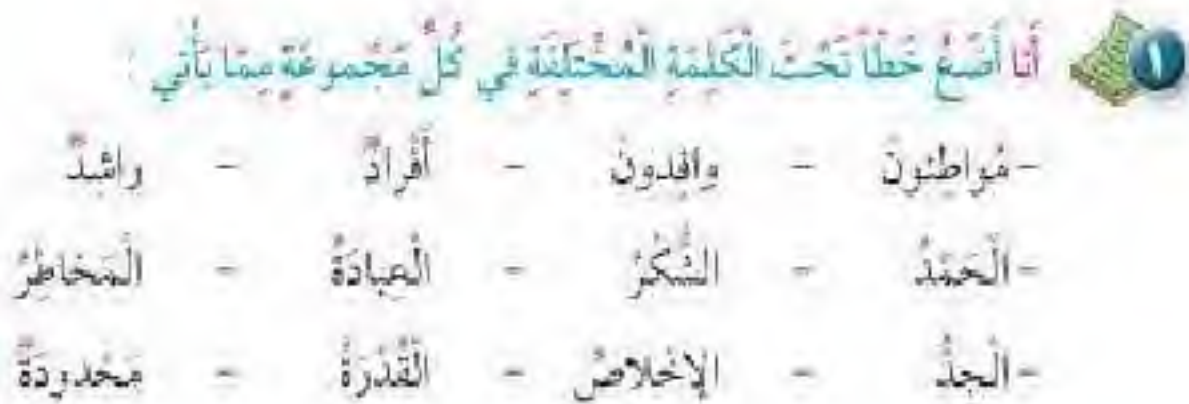 ١ أَنا أَضَعُ خَطّاً تَحْتَ الْكَلِمَةِ الْمُخْتَلِفَةِ في كُلِّ مَجْموعَةٍ مِمّا يَأْتي :
- مُواطِنونَ - وافِدونَ - أَفْرادٌ - راشِدٌ
- الْحَمْدُ - الشُّكْرُ - الْعِبادَةُ - الْمَخاطِرُ
- الْجِدُّ - الْإِخْلاصُ - الْقُدْرَةُ - مَحْدودَةٌ